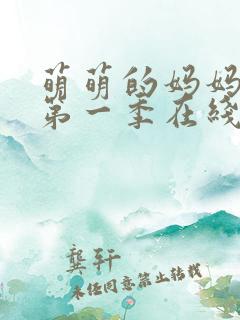 萌萌的妈妈
第一季在线
龚轩
未经同意禁止转载